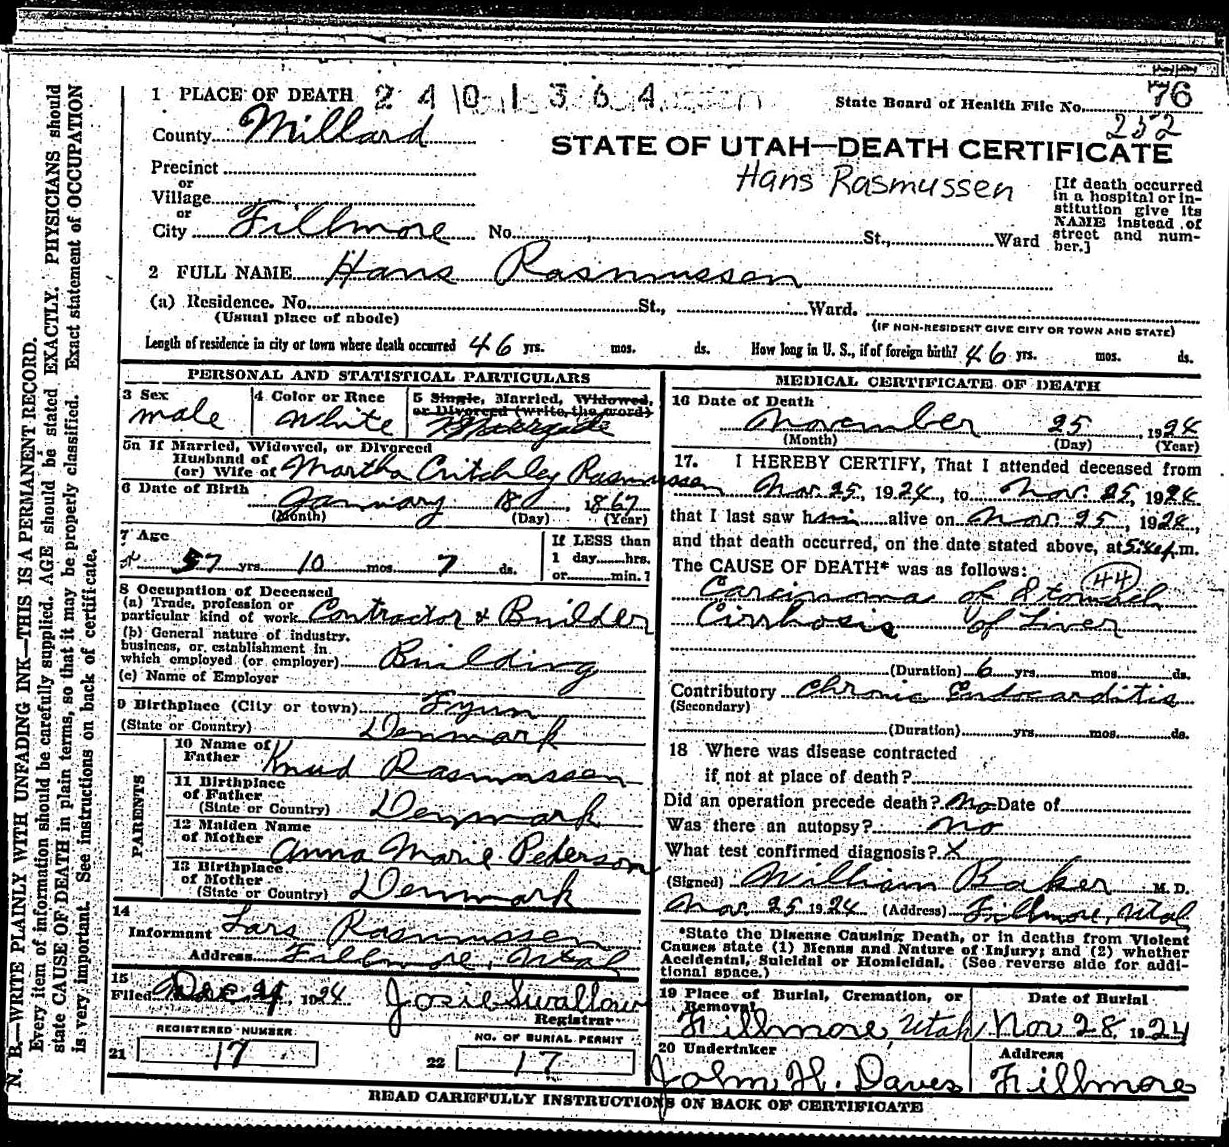 1 PLACE OF DEATH 2 4 0 1 3 6 4
State Board of Health File No. 76
232
County Millard
STATE OF UTAH—DEATH CERTIFICATE
Hans Rasmussen
Precinct
or
Village
or
City Fillmore No. St., Ward
[If death occurred in a hospital or in-
stitution give its
NAME instead of
street and num-
ber.]
2 FULL NAME Hans Rasmussen
(a) Residence. No. St., Ward.
(Usual place of abode)
(IF NON-RESIDENT GIVE CITY OR TOWN AND STATE)
Length of residence in city or town where death occurred 46 yrs. mos. ds. How long in U. S., if of foreign birth? 46 yrs. mos. ds.
PERSONAL AND STATISTICAL PARTICULARS
3 Sex male
4 Color or Race White
5 Single, Married, Widowed,
or Divorced (write the word)
5a If Married, Widowed, or Divorced
Husband of
(or) Wife of Martha Critchley Rasmussen
6 Date of Birth
January 18, 1867
(Month) (Day) (Year)
7 Age
57 yrs. 10 mos. 7 ds.
If LESS than
1 day hrs.
or min.?
8 Occupation of Deceased
(a) Trade, profession or
particular kind of work Contractor & Builder
(b) General nature of industry,
business, or establishment in
which employed (or employer) Building
(c) Name of Employer
9 Birthplace (City or town) Fyun
(State or Country) Denmark
PARENTS
10 Name of
Father Knud Rasmussen
11 Birthplace
of Father
(State or Country) Denmark
12 Maiden Name
of Mother Anna Marie Pederson
13 Birthplace
of Mother
(State or Country) Denmark
14
Informant Lars Rasmussen
Address Fillmore, Utah
15
Filed Dec 4, 1924 Josie Swallow
Registrar
REGISTERED NUMBER
21 17
NO. OF BURIAL PERMIT
22 17
MEDICAL CERTIFICATE OF DEATH
16 Date of Death
November 25, 1924
(Month) (Day) (Year)
17. I HEREBY CERTIFY, That I attended deceased from
Nov. 25, 1924, to Nov. 25, 1924
that I last saw him alive on Nov. 25, 1924,
and that death occurred, on the date stated above, at p.m.
The CAUSE OF DEATH* was as follows:
44
Carcinoma of Stomach
Cirrhosis of Liver
(Duration) 6 yrs. mos. ds.
Contributory Chronic Endocarditis
(Secondary)
(Duration) yrs. mos. ds.
18 Where was disease contracted
if not at place of death?
Did an operation precede death? No Date of
Was there an autopsy? No
What test confirmed diagnosis? X
(Signed) William Baker M. D.
Nov. 25 1924 (Address) Fillmore, Utah
*State the Disease Causing Death, or in deaths from Violent
Causes state (1) Means and Nature of Injury; and (2) whether
Accidental, Suicidal or Homicidal. (See reverse side for addi-
tional space.)
19 Place of Burial, Cremation, or
Removal
Fillmore, Utah
Date of Burial
Nov 28 1924
20 Undertaker
John H. Daves
Address
Fillmore
READ CAREFULLY INSTRUCTIONS ON BACK OF CERTIFICATE
N. B.—WRITE PLAINLY WITH UNFADING INK—THIS IS A PERMANENT RECORD.
Every item of information should be carefully supplied. AGE should be stated EXACTLY. PHYSICIANS should
state CAUSE OF DEATH in plain terms, so that it may be properly classified. Exact statement of OCCUPATION
is very important. See instructions on back of certificate.